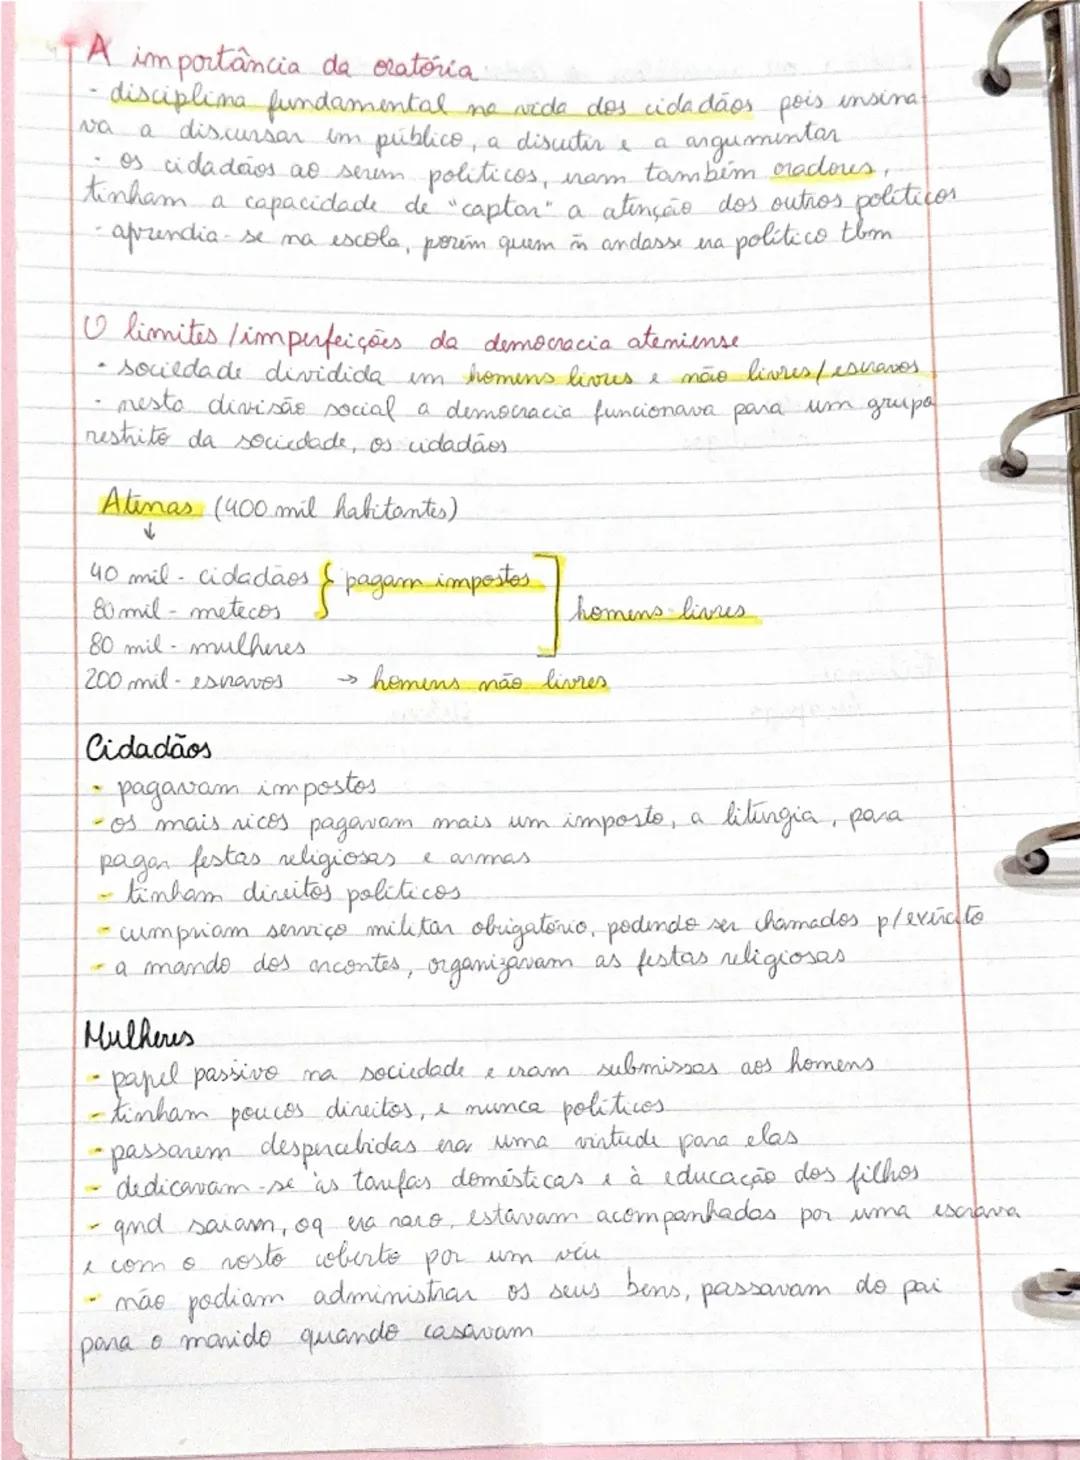 A importância da oratória
- disciplina fundamental na vida dos cidadãos pois ensina-
va a discursar em público, a discutir e a argumentar
- os cidadãos ao serem políticos, eram também oradores,
tinham a capacidade de "captar" a atenção dos outros políticos
- aprendia-se na escola, porém quem ñ andasse era político tbm
limites/imperfeições da democracia ateniense
- sociedade dividida em homens livres e não livres/escravos
- nesta divisão social a democracia funcionava para um grupo
restrito da sociedade, os cidadãos
Atenas (400 mil habitantes)
↓
40 mil - cidadãos } pagam impostos
80 mil - metecos ] homens livres
80 mil - mulheres
200 mil - escravos → homens não livres
Cidadãos
- pagavam impostos
- os mais ricos pagavam mais um imposto, a liturgia, para
pagar festas religiosas e armas
- tinham direitos políticos
- cumpriam serviço militar obrigatório, podendo ser chamados p/exército
- a mando dos arcontes, organizavam as festas religiosas
Mulheres
- papel passivo na sociedade e eram submissas aos homens
- tinham poucos direitos, e nunca políticos
- passarem despercebidas era uma virtude para elas
- dedicavam-se às tarefas domésticas e à educação dos filhos
- qnd saiam, oq era raro, estavam acompanhadas por uma escrava
e com o rosto coberto por um véu
- não podiam administrar os seus bens, passavam do pai
para o marido quando casavam